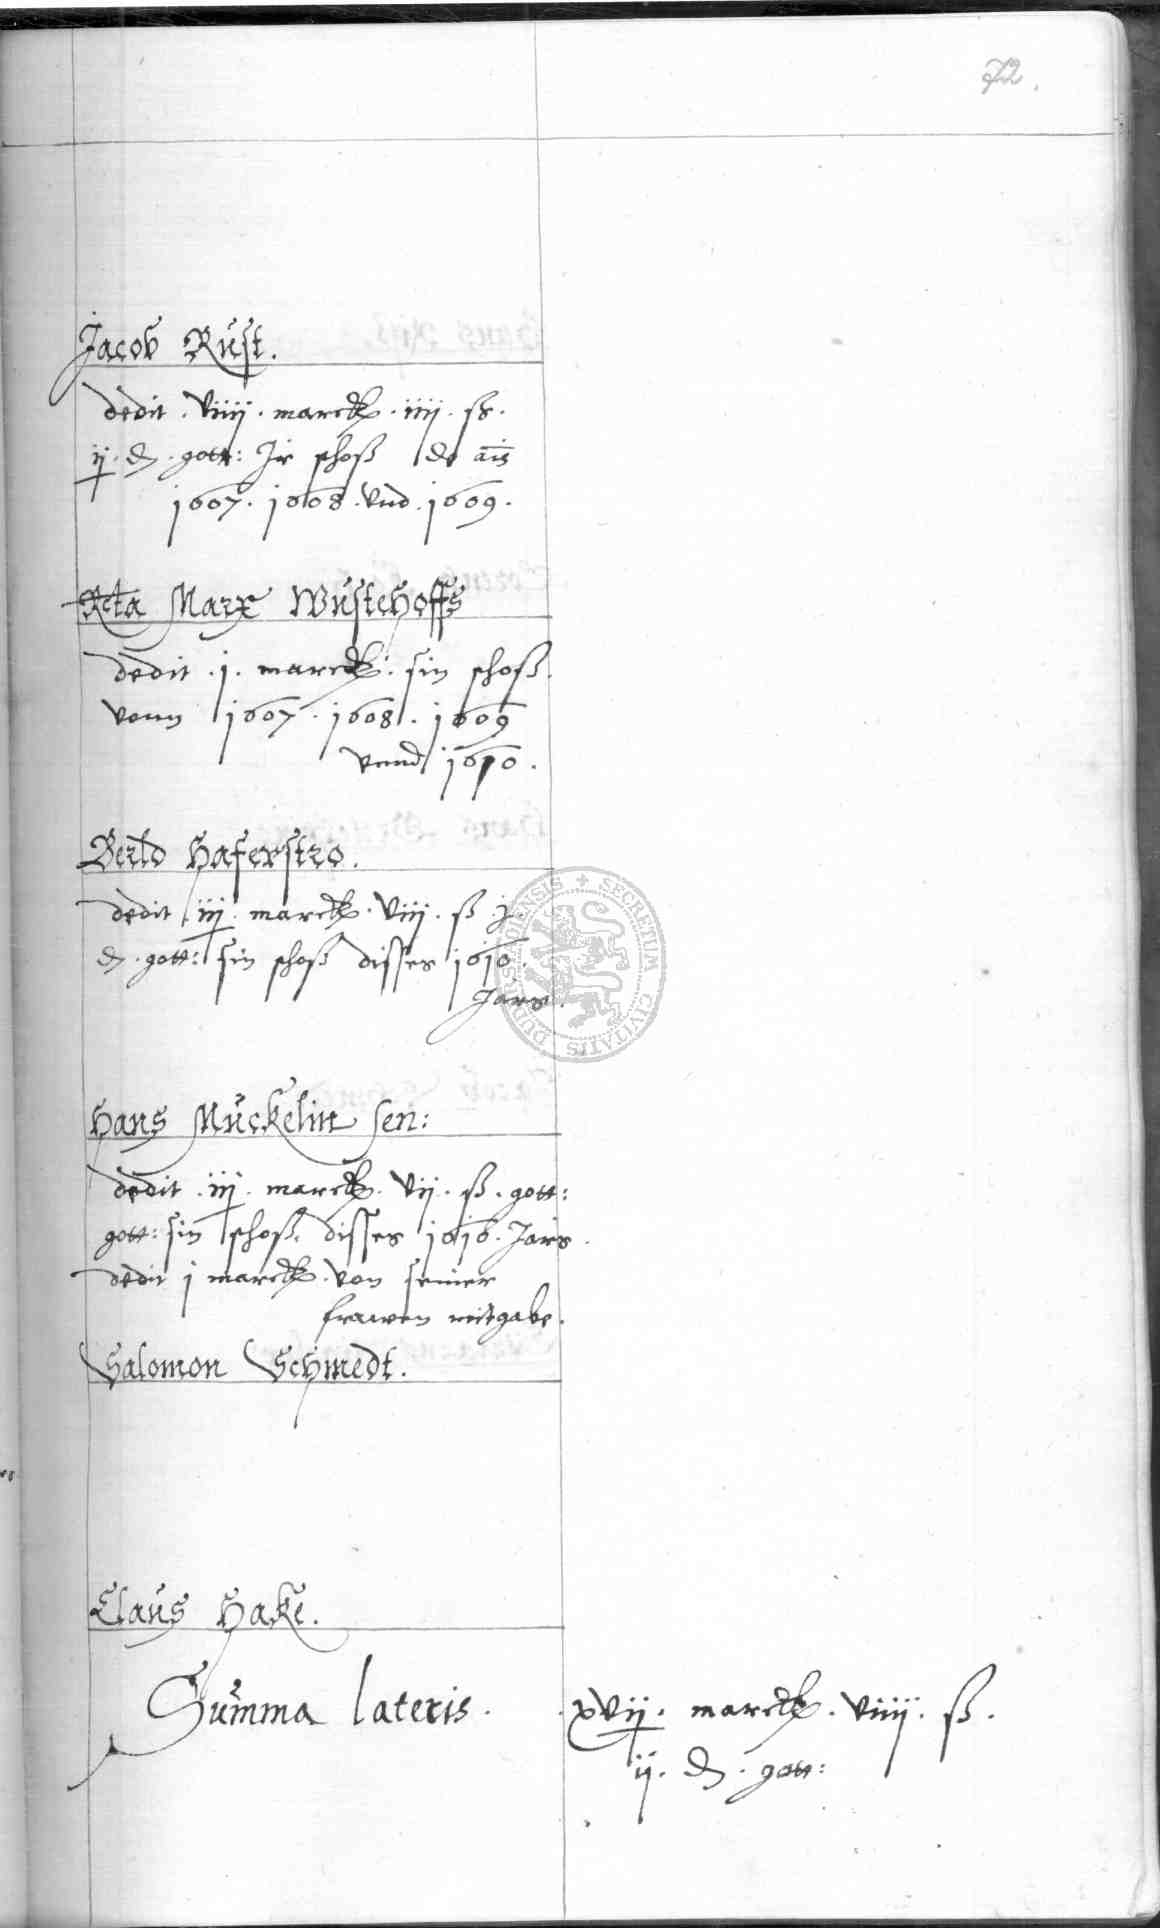 72.
Jacob Rust.
dedit . viiij . marck . iiij . ß .
ij . d . gott: Jr schoß de ais
1607 . 1608 . vnd . 1609 .
Reta Marx Wustehoffs
dedit . j . marck . sin schoß .
vonn 1607 . 1608 . 1609
vnnd 1610 .
Bertld Haferstro .
dedit iij . marck . viiij . ß j .
d . gott: sin schoß disses 1610 .
Jars .
Hans Muckelin Sen:
dedit . iij . marck . vij . ß . gott:
gott: sin schoß . disses 1610 . Jars .
dedit j marck . von seiner
frawen mitgabe .
Salomon Schmedt .
Claus Hake .
Summa lateris . xvij . marck . viiij . ß .
ij . d . gott:
SECRETUM CIVITATIS DUDERSTADIENSIS